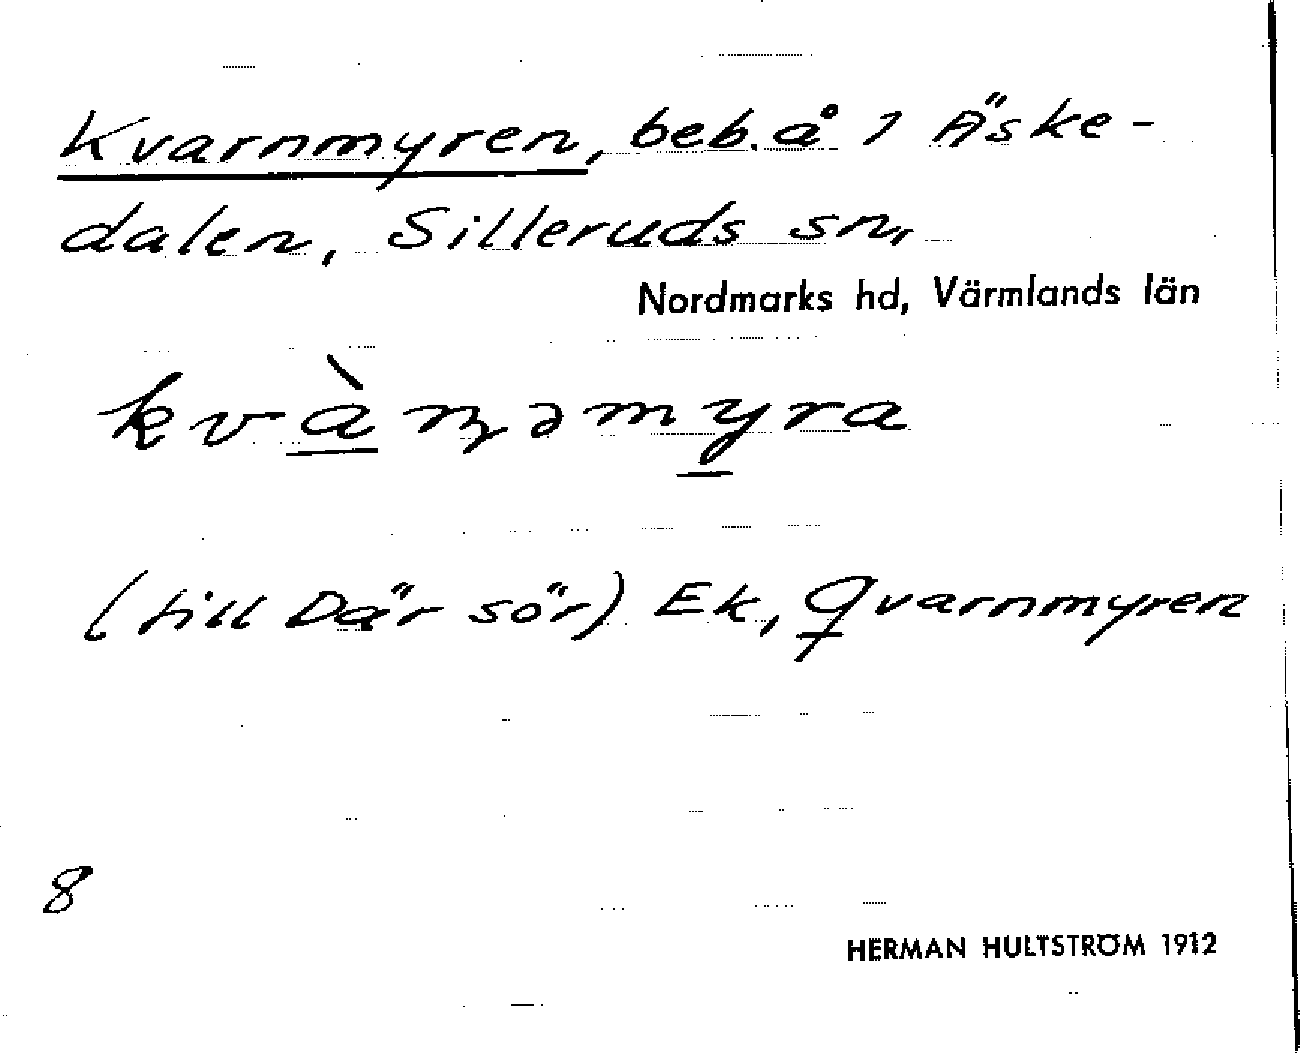 Kvarnmyren, beb. å 1 Äske-
dalen, Silleruds sn,
Nordmarks hd, Värmlands län
kvàɳəmyra
(till Där sör) Ek, Qvarnmyren
8
HERMAN HULTSTRÖM 1912